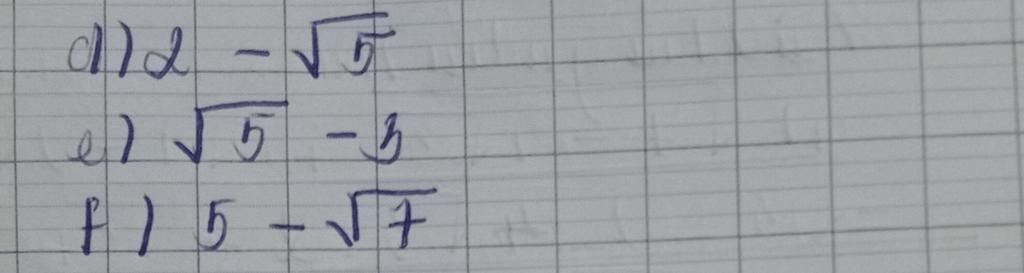 d) 2 - √5
e) √5 - 3
f) 5 - √7